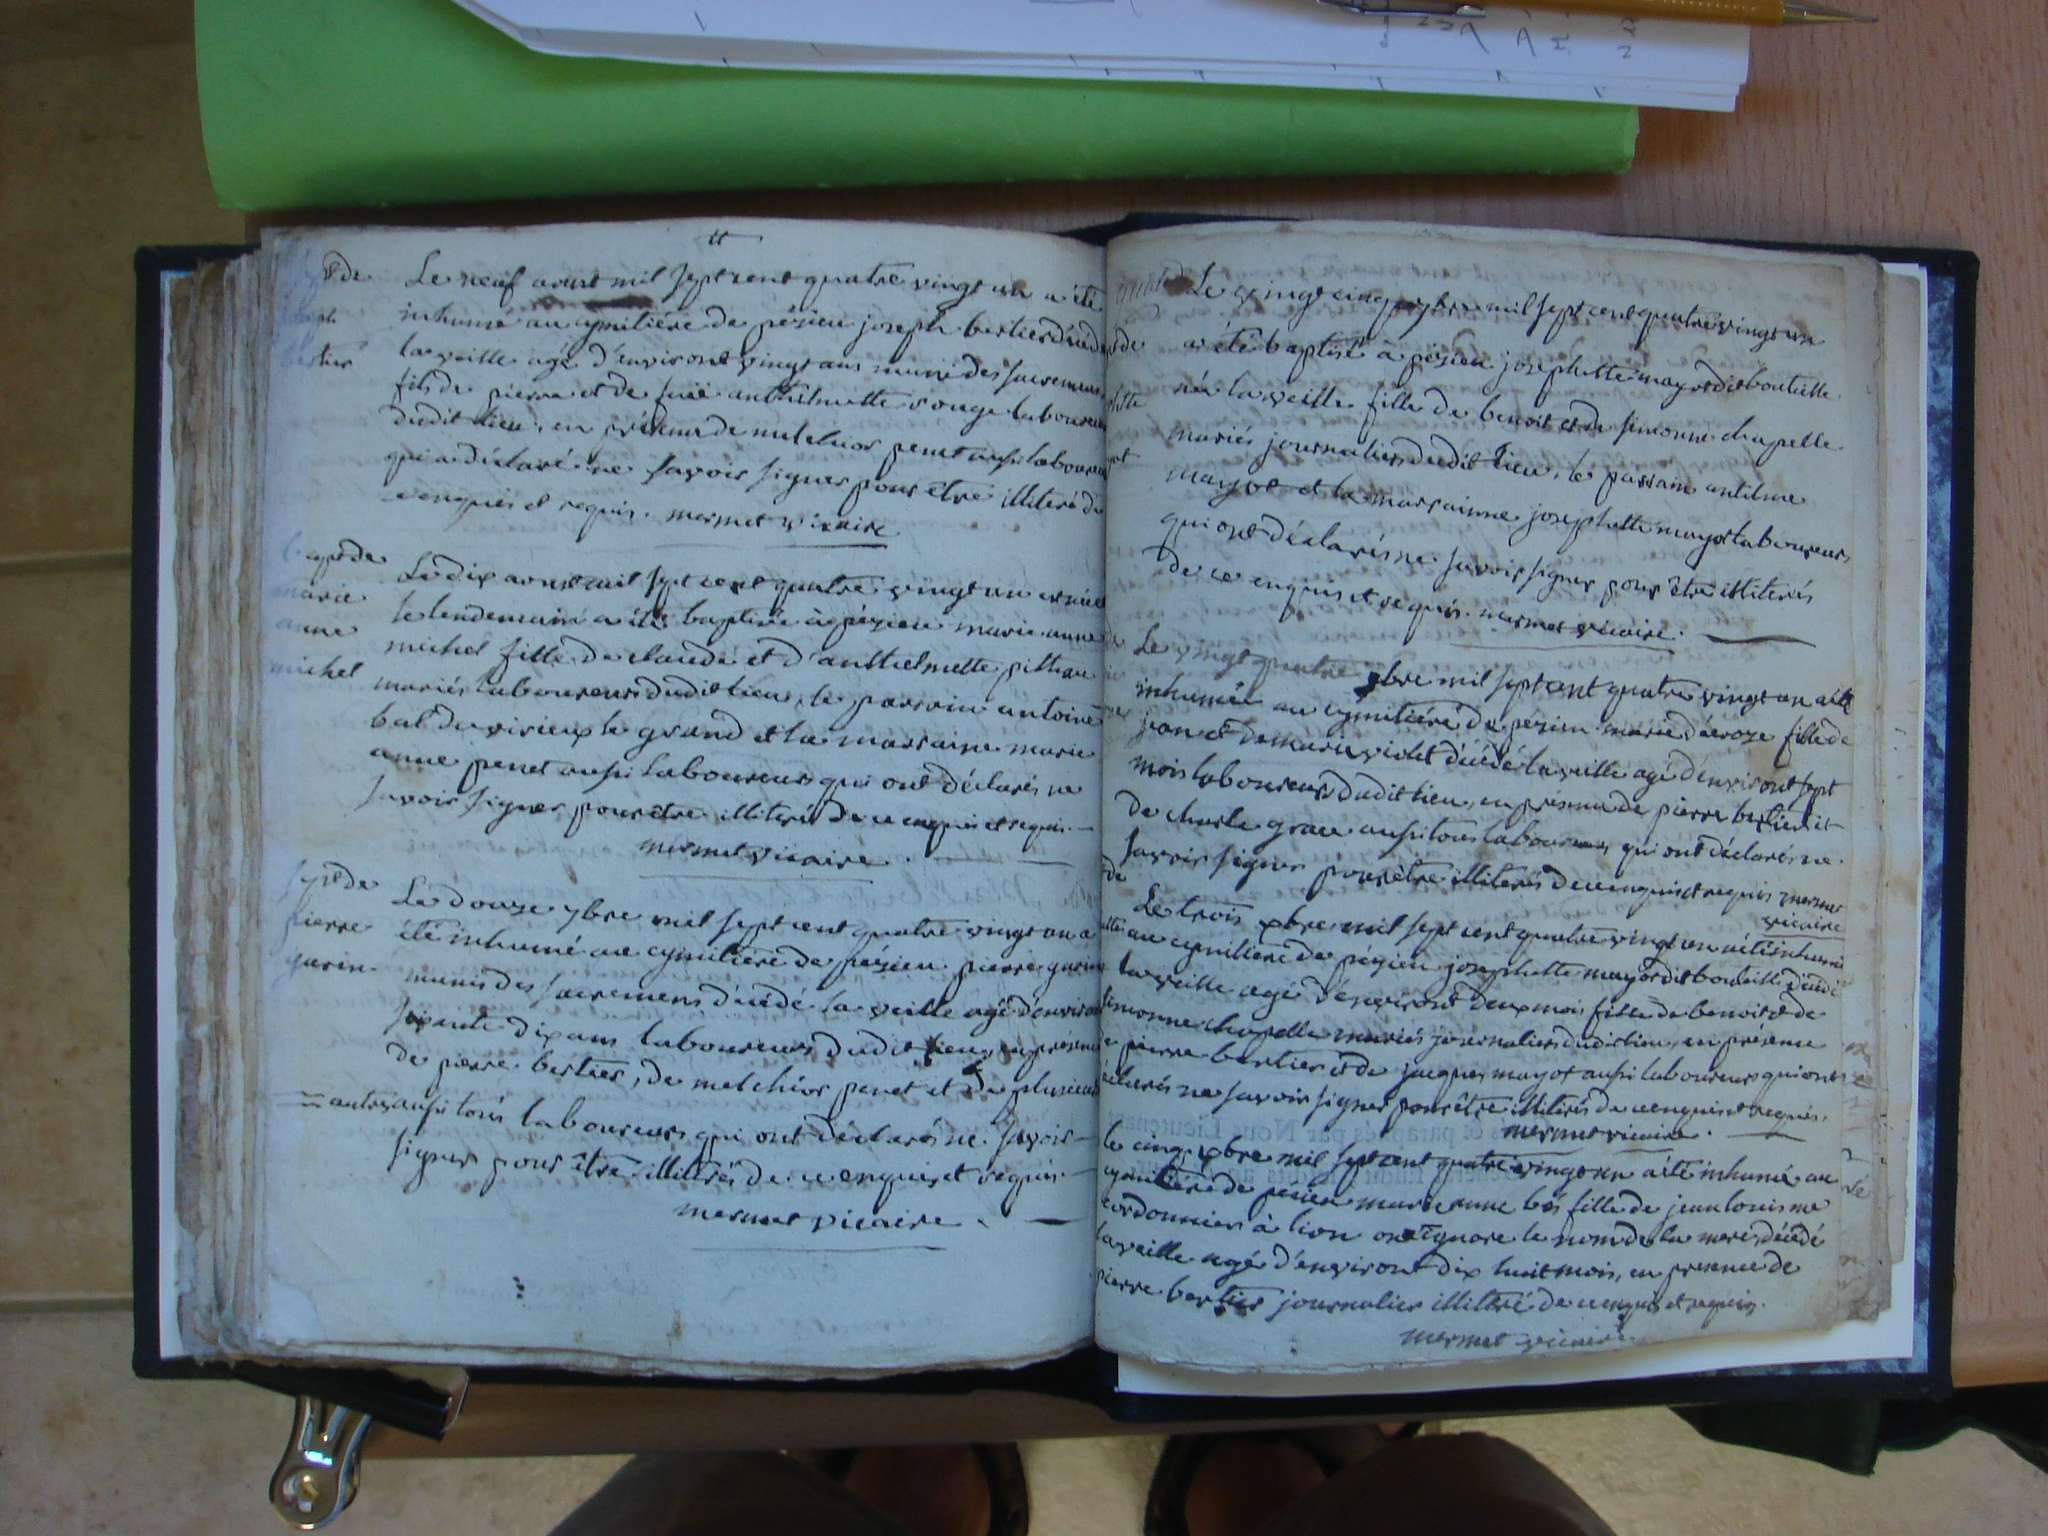 Le neuf aoust mil sept cent quatre vingt un a été
inhumé au cymitiére de pézieu joseph bertier décédé
la veille agé d'environt vingt ans muni des sacremens
fils de pierre et de feue anthelmette rouge laboureurs
dudit lieu, en présence de melchior penet aussi laboureur
qui a déclaré ne savoir signer pour être illiteré de
ce enquis et requis. mermet vicaire
bapt de
marie
anne
michel
Le dix aoust mil sept cent quatre vingt un est née et
le lendemain a été baptisée à pézieu marie anne
michel fille de claude et d'anthelmette pittion
mariés laboureurs dudit lieu, le parrain antoine
bal de virieu le grand et la marraine marie
anne penet aussi laboureurs qui ont déclarés ne
savoir signer pour être illiterés de ce enquis et requis.
mermet vicaire.
sept de
pierre
gurin
Le douze 7bre mil sept cent quatre vingt un a
été inhumé au cymitiére de pézieu pierre gurin
munis des sacremens décédé la veille agé d'environt
soixante dix ans laboureurs dudit lieu, en présence
de pierre bertier, de melchior penet et de plusieurs
autres aussi tous laboureurs qui ont déclarés ne savoir
signer pour être illiterés de ce enquis et requis
mermet vicaire.
Le vingt cinq mil sept cent quatre vingt un
a été baptisé à pézieu josephette mayot dit bouteille
née la veille fille de benoit et de simonne chapelle
mariés journaliers dudit lieu, le parrain antilme
mayot et la marrainne josephette mayot laboureurs
qui ont déclarés ne savoir signer pour être illiterés
de ce enquis et requis. mermet vicaire.
Le vingt quatre 9bre mil sept cent quatre vingt un a été
inhumée au cymitiére de pézieu marie déroze fille de
jean et de marie violet décédé la veille agé d'environt sept
mois laboureurs dudit lieu, en présence de pierre bertier et
de charle grace aussi tous laboureurs qui ont déclarés ne
savoir signer pour être illiterés de ce enquis et requis mermet
vicaire
Le trois xbre mil sept cent quatre vingt un a été inhumé
au cymitiere de pézieu josephette mayot dit bouteille décédé
la veille agé d'environt deux mois fille de benoit et de
simonne chapelle mariés journaliers dudit lieu, en présence
de pierre bertier et de jacques mayot aussi laboureurs qui ont
déclarés ne savoir signer pour être illiterés de ce enquis et requis.
mermet vicaire.
le cinq xbre mil sept cent quatre vingt un a été inhumée au
cymitiére de pezieu marie anne bés fille de jean louis
cordonnier à lion on ignore le nom de la mere, décédé
la veille agée d'environt dix huit mois, en presence de
pierre bertier journalier illitéré de ce enquis et requis.
mermet vicaire.